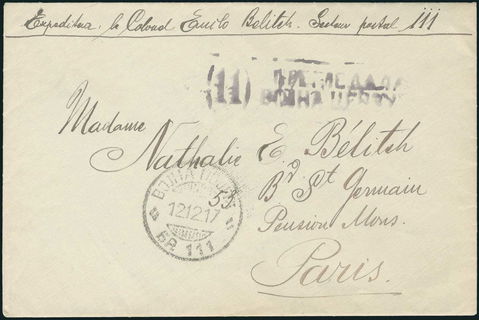 Expediteur. le Colonel Emilo Bélitch. Secteur postal 111
(11) ПРЕГЛЕДАЛА
ВОЈНА ЦЕНЗУРА
Madame
Nathalie E. Bélitch
53, Bd St Germain
Pension Mons.
Paris.
ВОЈНА ПОШТА
12.12.17
БР. 111